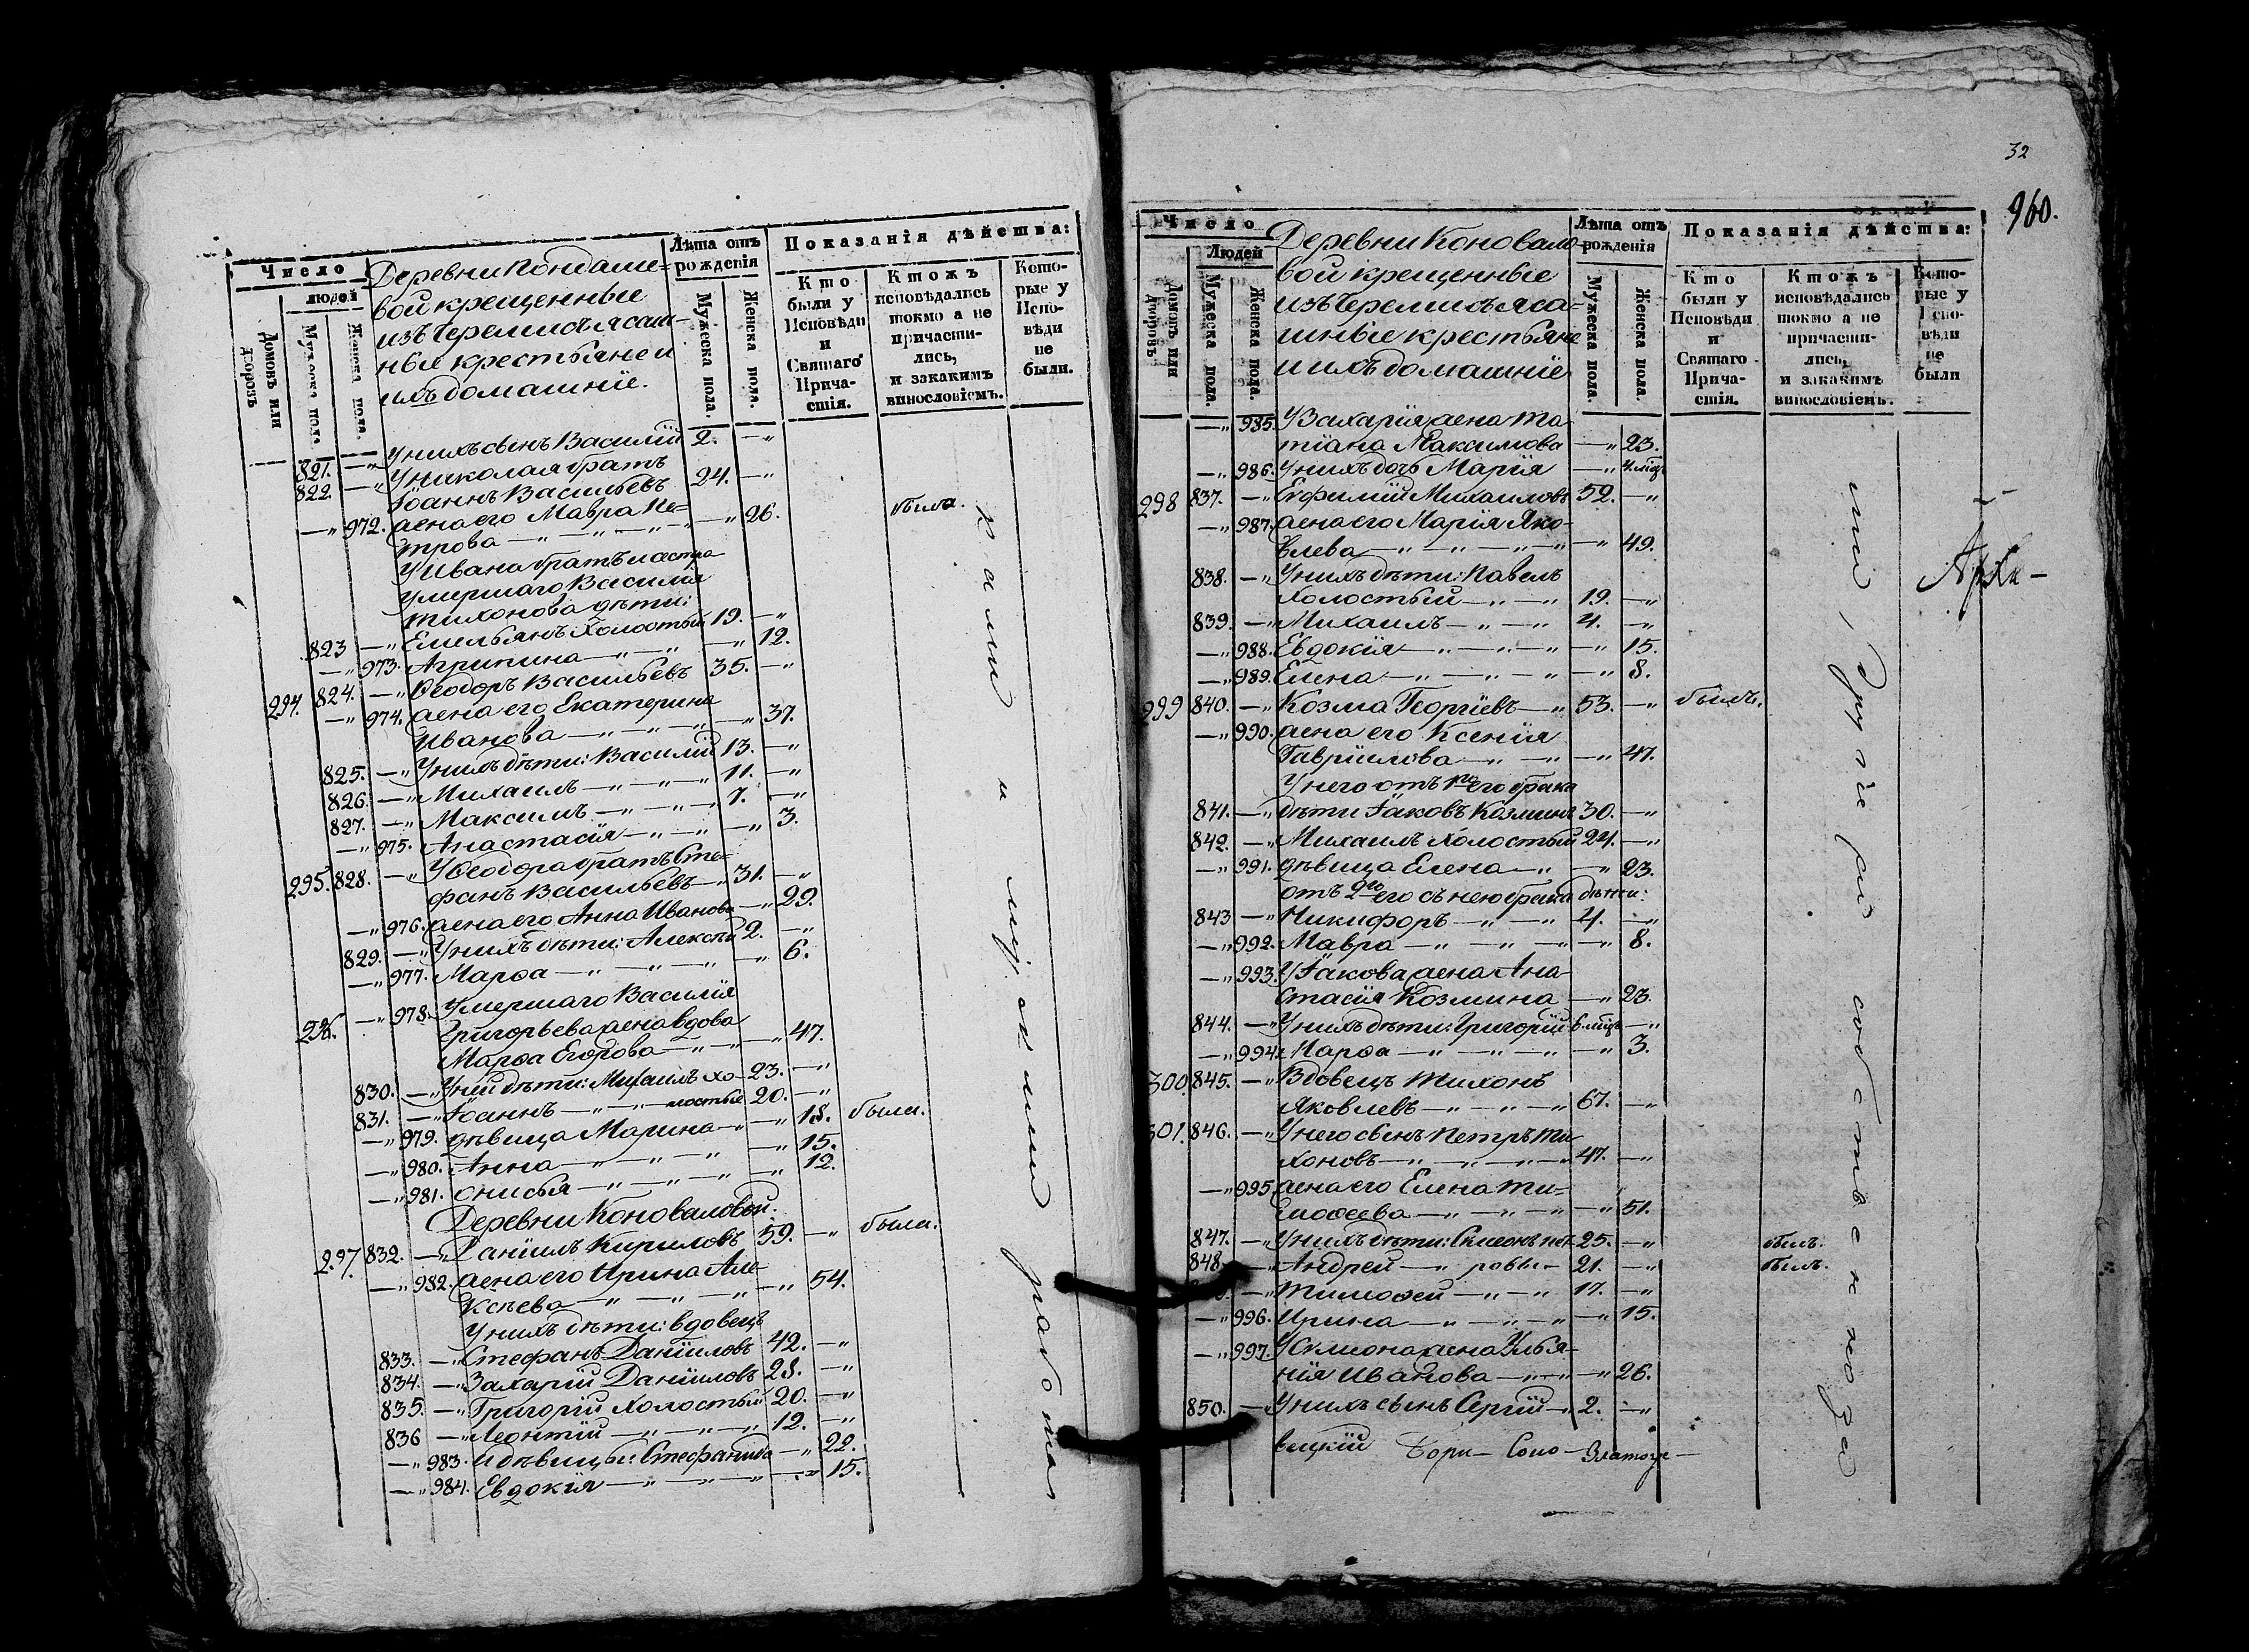 Число
Людей
Домовъ или дворовъ
Мужеска пола.
Женска пола.
Деревни Кондаше=
вой крещенные
изъ Черемисъ ясаш-
ные крестьяне и
ихъ домашніе.
Лѣта отъ рожденія
Мужеска пола.
Женска пола.
Показанія дѣйства:
Кто были у Исповѣди и Святаго Прича-стія.
Ктожъ исповѣдались токмо а не причасти-лись, и закакимъ винословіемъ.
Кото-рые у Испо-вѣди не были.
821. —„ У нихъ сынъ Василій 2. —„
822. —„ У Николая братъ
Іоаннъ Васильевъ 24. —„
—„ 972. жена его Мавра Пе=
трова —„ —„ —„ 26. была.
У Ивана брата
умершаго Василія
Тихонова дѣти:
823 —„ Емельянъ Холостый 19. —„
—„ 973. Агрипина —„ —„ —„ 12.
294. 824. —„ Ѳеодоръ Васильевъ 35. —„
—„ 974. жена его Екатерина
Иванова —„ —„ —„ —„ 37.
825. —„ У нихъ дѣти: Василій 13. —„
826. —„ Михаилъ —„ —„ —„ 11. —„
827. —„ Максимъ —„ —„ 7. —„
—„ 975. Анастасія —„ —„ —„ 3.
295. 828. —„ У Ѳеодора братъ Сте=
фанъ Васильевъ —„ 31. —„
—„ 976. жена его Анна Иванова —„ 29.
829. —„ У нихъ дѣти: Алексѣй 2. —„
—„ 977. Марѳа —„ —„ —„ —„ 6.
296. —„ 978. Умершаго Василія
Григорьева жена вдова
Марѳа Егорова —„ —„ —„ 47.
830. —„ У ней дѣти: Михаилъ хо- 23. —„
831. —„ Іоаннъ —„ —„ лостые 20. —„
—„ 979. дѣвица Марина —„ —„ 18. была.
—„ 980. Анна —„ —„ —„ —„ 15.
—„ 981. Онисья —„ —„ —„ —„ 12.
Деревни Коноваловой.
297. 832. —„ Даніилъ Кириловъ 59. —„ была.
—„ 982. жена его Ирина Але-
ксѣева —„ —„ —„ —„ 54.
У нихъ дѣти: вдовецъ
833. —„ Стефанъ Даніиловъ 42. —„
834. —„ Захарій Даніиловъ 28. —„
835. —„ Григорій Холостый 20. —„
836 —„ Леонтій —„ —„ —„ 12. —„
—„ 983. и дѣвицы: Стефанида —„ 22.
—„ 984. Евдокія —„ —„ —„ —„ 15.
рами и мірскими работа
32
960.
Число
Людей
Домовъ или дворовъ
Мужеска пола.
Женска пола.
Деревни Коновало-
вой крещенные
изъ Черемисъ яса=
шные крестьяне
и ихъ домашніе
Лѣта отъ рожденія
Мужеска пола.
Женска пола.
Показанія дѣйства:
Кто были у Исповѣди и Святаго Прича-стія.
Ктожъ исповѣдались токмо а не причасти-лись, и закакимъ винословіемъ.
Кото-рые у Испо-вѣди не были
—„ 985. У Захарія жена Та-
тіана Максимова —„ 23.
—„ 986. У нихъ дочь Марія —„
298 837. —„ Евфимій Михаиловъ 52. —„
—„ 987. жена его Марія Яко-
влева —„ —„ —„ —„ 49.
838. —„ У нихъ дѣти: Павелъ
холостый —„ —„ 19. —„
839. —„ Михаилъ —„ —„ 4. —„
—„ 988. Евдокія —„ —„ —„ —„ 15.
—„ 989. Елена —„ —„ —„ —„ 8.
299 840. —„ Козма Георгіевъ —„ 53. —„ былъ.
—„ 990. жена его Ксенія
Гавріилова —„ —„ —„ 47.
У него отъ 1го его брака
841. —„ дѣти Іаковъ Козминъ 30. —„
842. —„ Михаилъ Холостый 24. —„
—„ 991. дѣвица Елена —„ —„ 23.
отъ 2го его съ нею брака дѣти:
843 —„ Никифоръ —„ —„ 4. —„
—„ 992. Мавра —„ —„ —„ —„ 8.
—„ 993. У Іакова жена Ана-
стасія Козмина —„ 23.
844. —„ У нихъ дѣти: Григорій 6. мцъ —„
—„ 994. Марѳа —„ —„ —„ —„ 3.
300. 845. —„ Вдовецъ Тихонъ
Яковлевъ —„ —„ —„ 67. —„
301. 846. —„ У него сынъ Петръ Ти-
хоновъ —„ —„ —„ 47. —„
—„ 995. жена его Елена Ти=
моѳеева —„ —„ —„ —„ 51.
847. —„ У нихъ дѣти: Симеонъ пет- 25. —„ былъ.
848. —„ Андрей —„ ровы- 21. —„ былъ.
—„ Тимоѳей —„ —„ 17. —„
—„ 996. Ирина —„ —„ —„ —„ 15.
—„ 997. У Симеона жена Улья-
нія Иванова —„ —„ —„ 26.
850. — У нихъ сынъ Сергій —„ 2. —„
ми, другіе собственно
Архи-